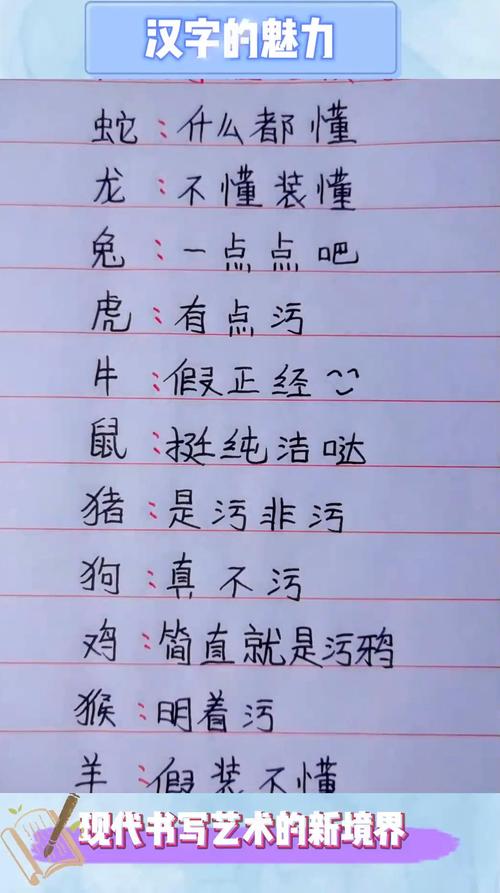 汉字的魅力
蛇:什么都懂
龙:不懂装懂
兔:一点点吧
虎:有点污
牛:假正经
鼠:挺纯洁哒
猪:是污非污
狗:真不污
鸡:简直就是污鸦
猴:明着污
羊:假装不懂
现代书写艺术的新境界